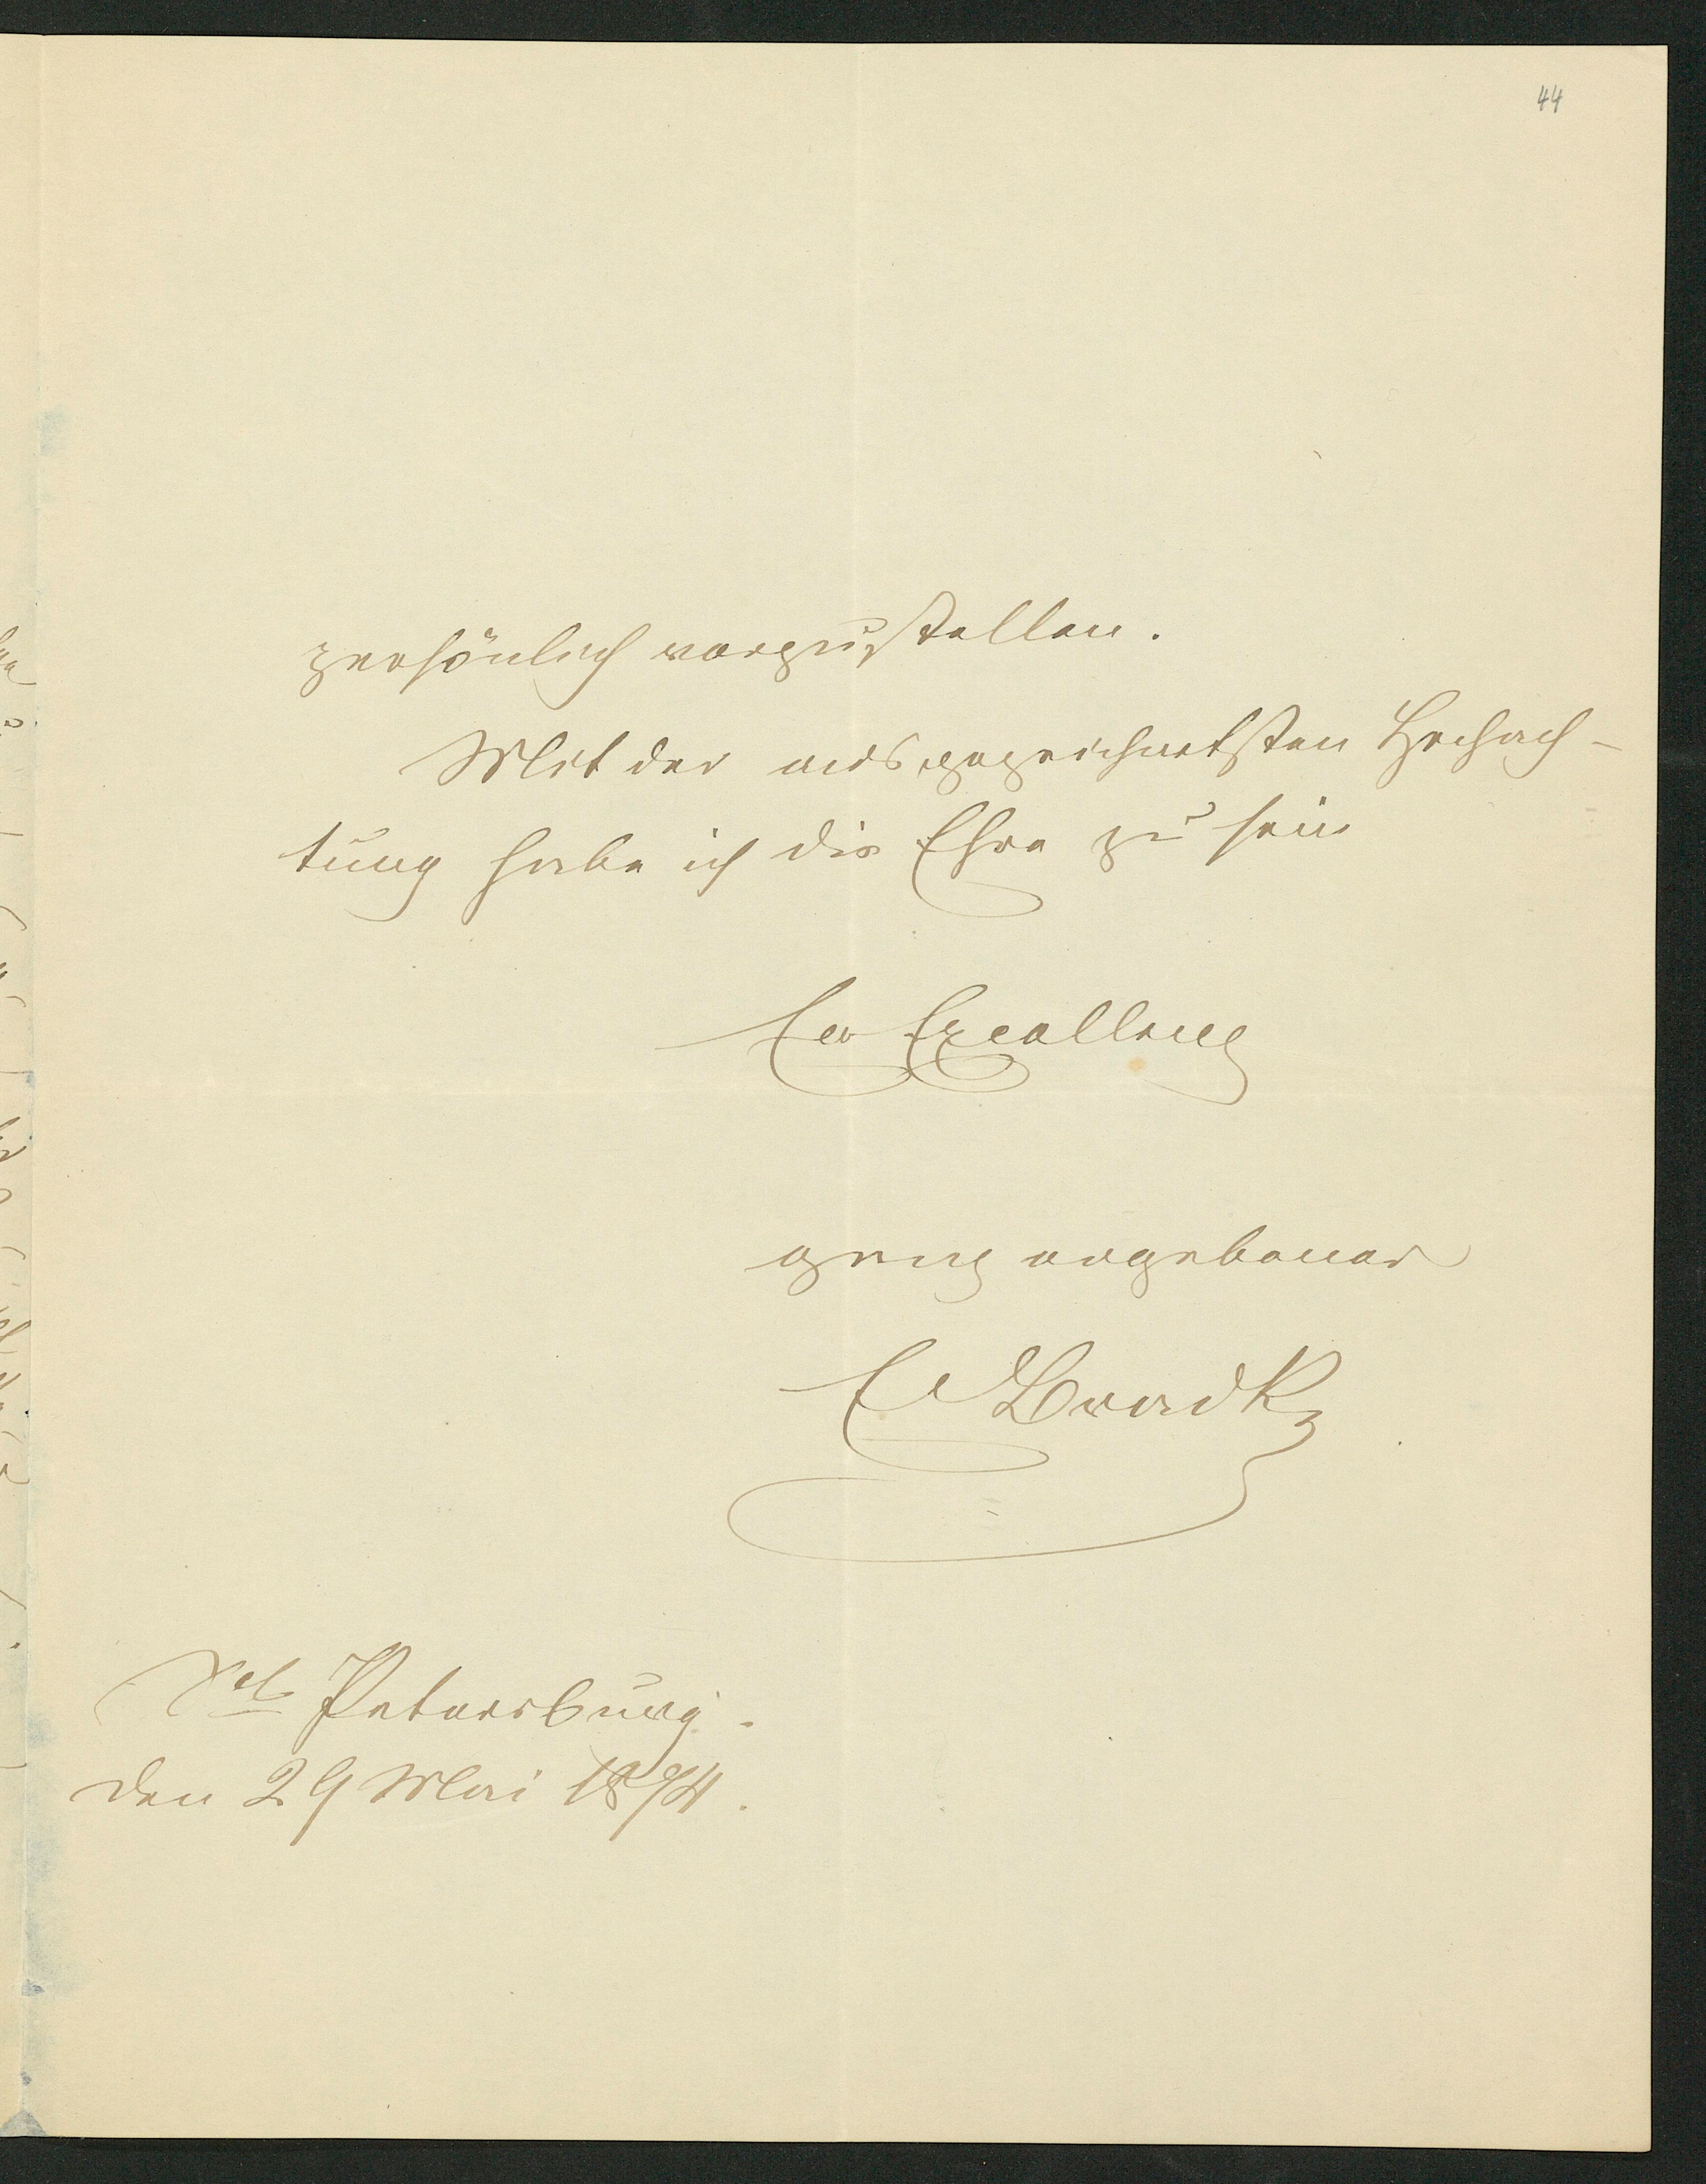 44
persönlich vorzustellen.
Mit der ausgezeichnetsten Hochach-
tung habe ich die Ehre zu sein
Ew Excellenz
ganz ergebener
E Bradke
St Petersburg.
den 29 Mai 1874.